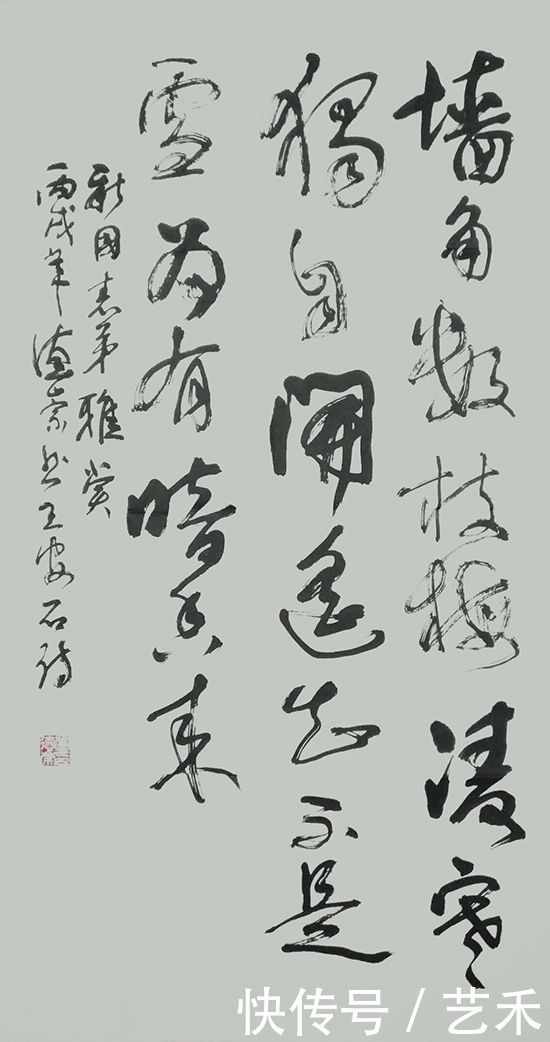 墙角数枝梅凌寒
独自开遥知不是
雪为有暗香来
新国志弟雅赏
丙戌年德崇书王安石诗
快传号/艺禾